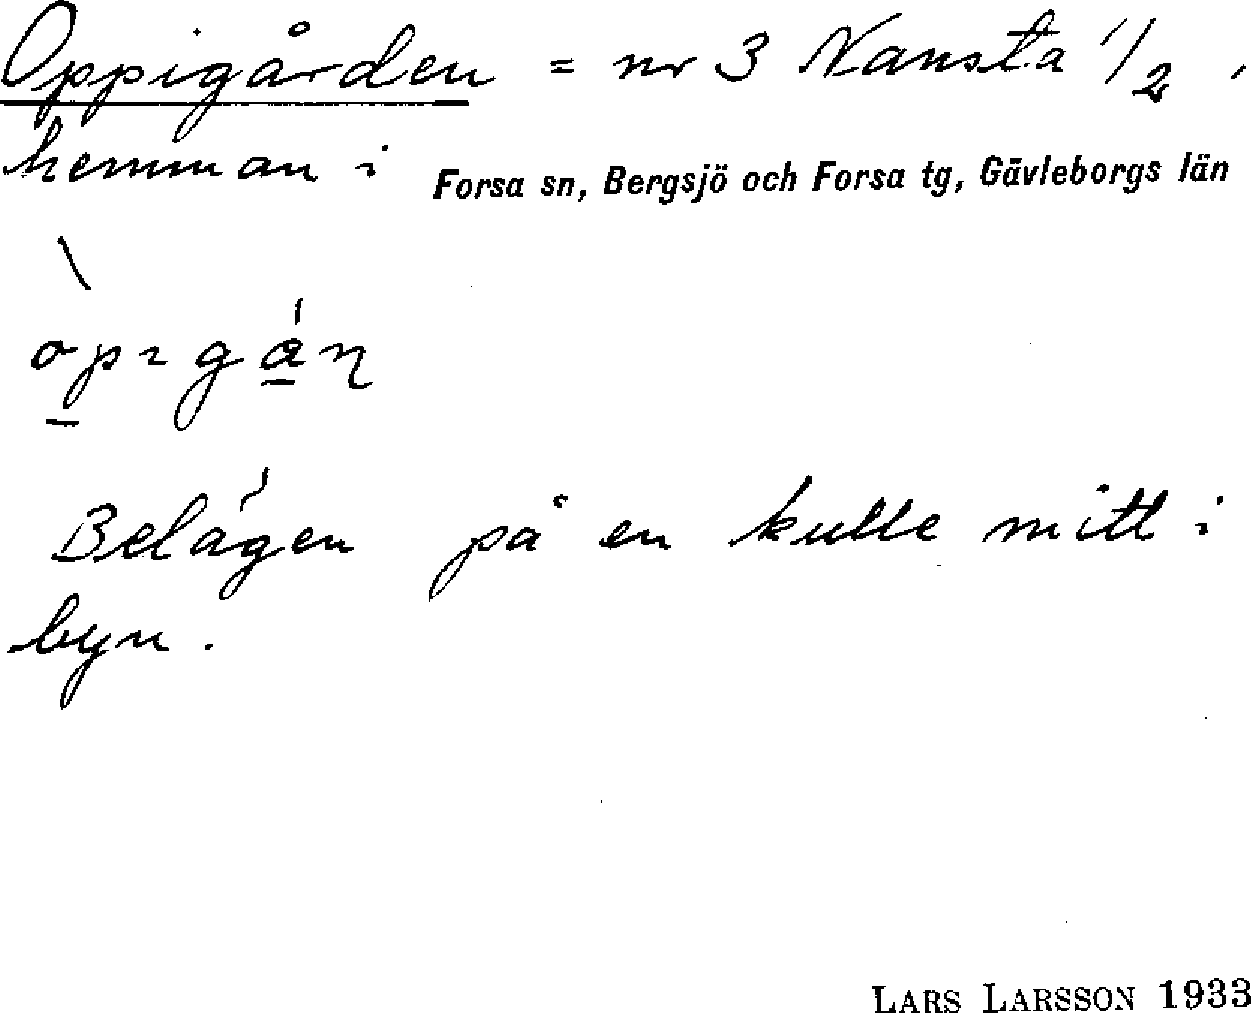 Oppigården = nr 3 Nansta 1/2,
hemman i Forsa sn, Bergsjö och Forsa tg, Gävleborgs län
Belägen på en kulle mitt i
byn.
LARS LARSSON 1933